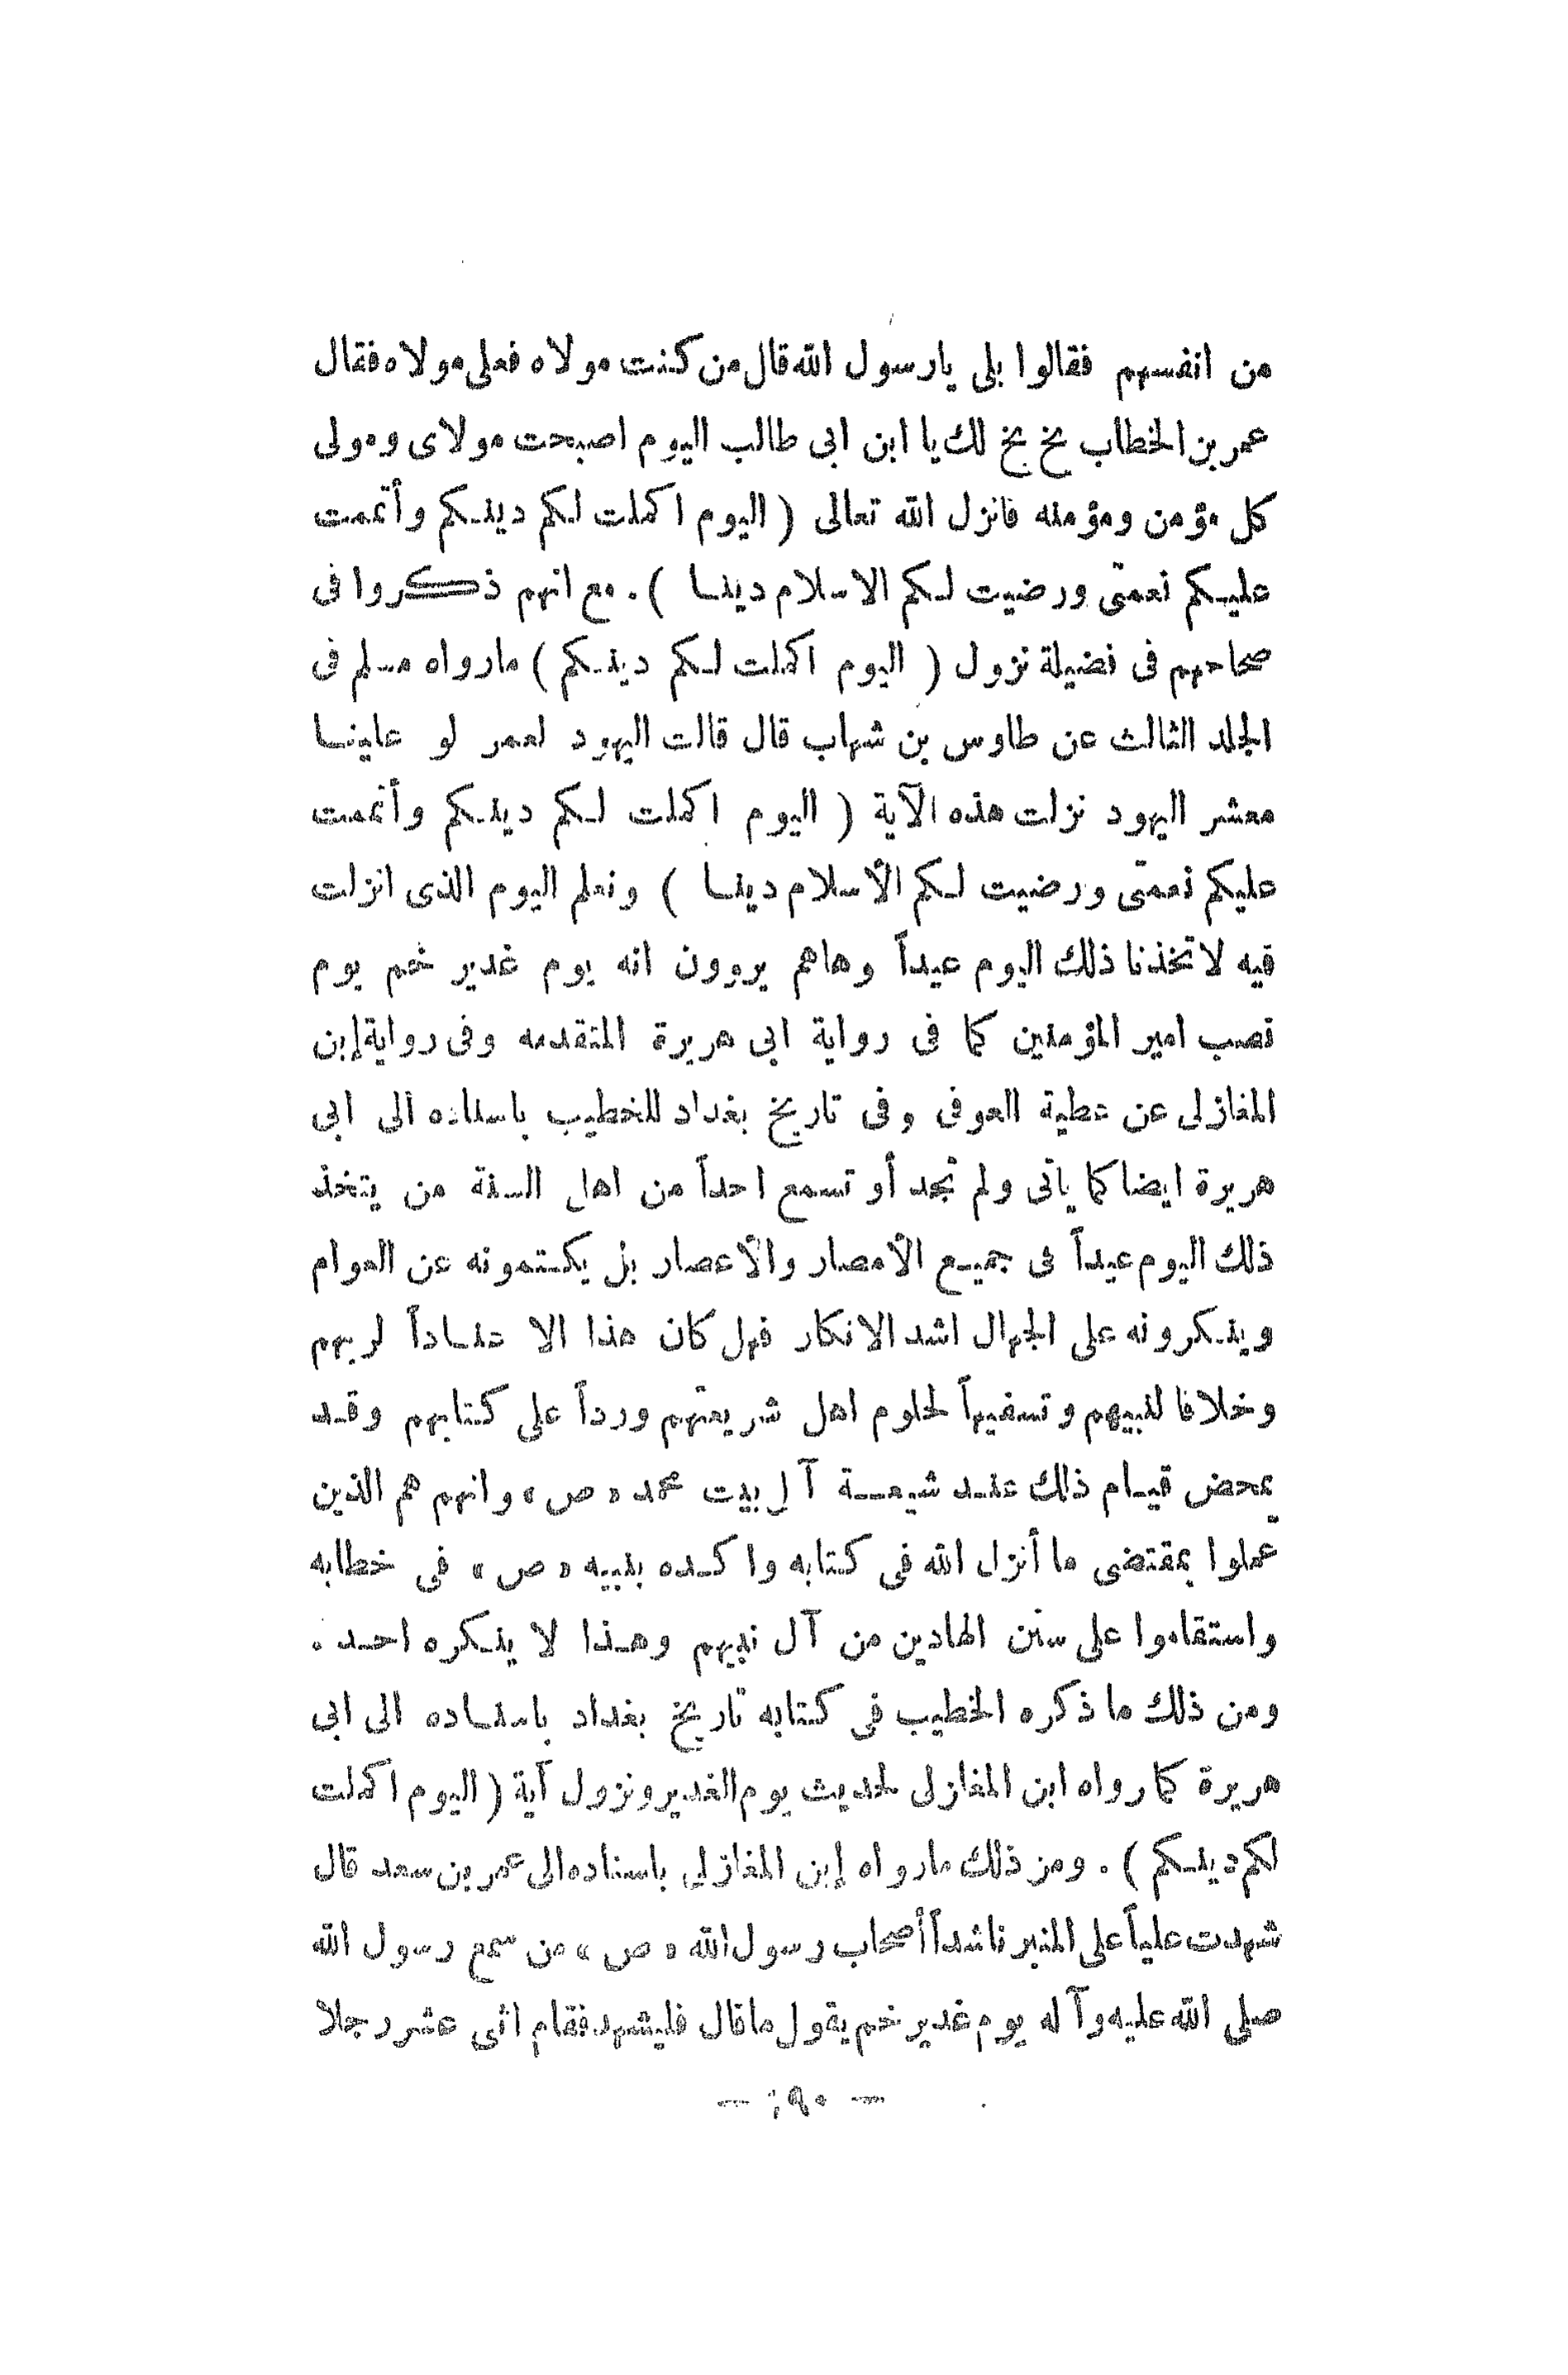 من انفسهم فقالوا بلى يارسول الله قال من كنت مولاه فعلى مولاه فقال
عمر بن الخطاب بخ بخ لك يا ابن ابى طالب اليوم اصبحت مولاى ومولى
كل مؤمن ومؤمنه فانزل الله تعالى ( اليوم اكملت لكم دينكم وأتممت
عليكم نعمتى ورضيت لكم الاسلام دينا ) . مع انهم ذكروا فى
صحاحهم فى فضيلة نزول ( اليوم اكملت لكم دينكم ) مارواه مسلم فى
الجلد الثالث عن طاوس بن شهاب قال قالت اليهود لعمر لو علينا
معشر اليهود نزلت هذه الآية ( اليوم اكملت لكم دينكم وأتممت
عليكم نعمتى ورضيت لكم الأسلام دينا ) ونعلم اليوم الذى انزلت
فيه لاتخذنا ذلك اليوم عيداً وهاهم يروون انه يوم غدير خم يوم
نصب امير المؤمنين كما فى رواية ابى هريرة المتقدمه وفى رواية إبن
المغازلى عن عطية العوفى وفى تاريخ بغداد للخطيب باسناده الى ابى
هريرة ايضا كما يأتى ولم تجد أو تسمع احداً من اهل السنة من يتخذ
ذلك اليوم عيداً فى جميع الأمصار والأعصار بل يكتمونه عن العوام
وينكرونه على الجهال اشد الانكار فهل كان هذا الا عناداً لربهم
وخلافا لنبيهم وتسفيهاً لحلوم اهل شريعتهم ورداً على كتابهم وقد
تمحض قيام ذلك عند شيعة آل بيت محمد « ص » وانهم هم الذين
عملوا بمقتضى ما أنزل الله فى كتابه واكده بنبيه « ص » فى خطابه
واستقاموا على سنن الهادين من آل نبيهم وهذا لا ينكره احد .
ومن ذلك ما ذكره الخطيب فى كتابه تاريخ بغداد باسناده الى ابى
هريرة كما رواه ابن المغازلى لحديث يوم الغدير ونزول آية ( اليوم اكملت
لكم دينكم ) . ومن ذلك مارواه إبن المغازلى باسناده الى عمر بن سعد قال
شهدت علياً على المنبر ناشداً أصحاب رسول الله « ص » من سمع رسول الله
صلى الله عليه وآله يوم غدير خم يقول ما قال فليشهد فقام اثنى عشر رجلا